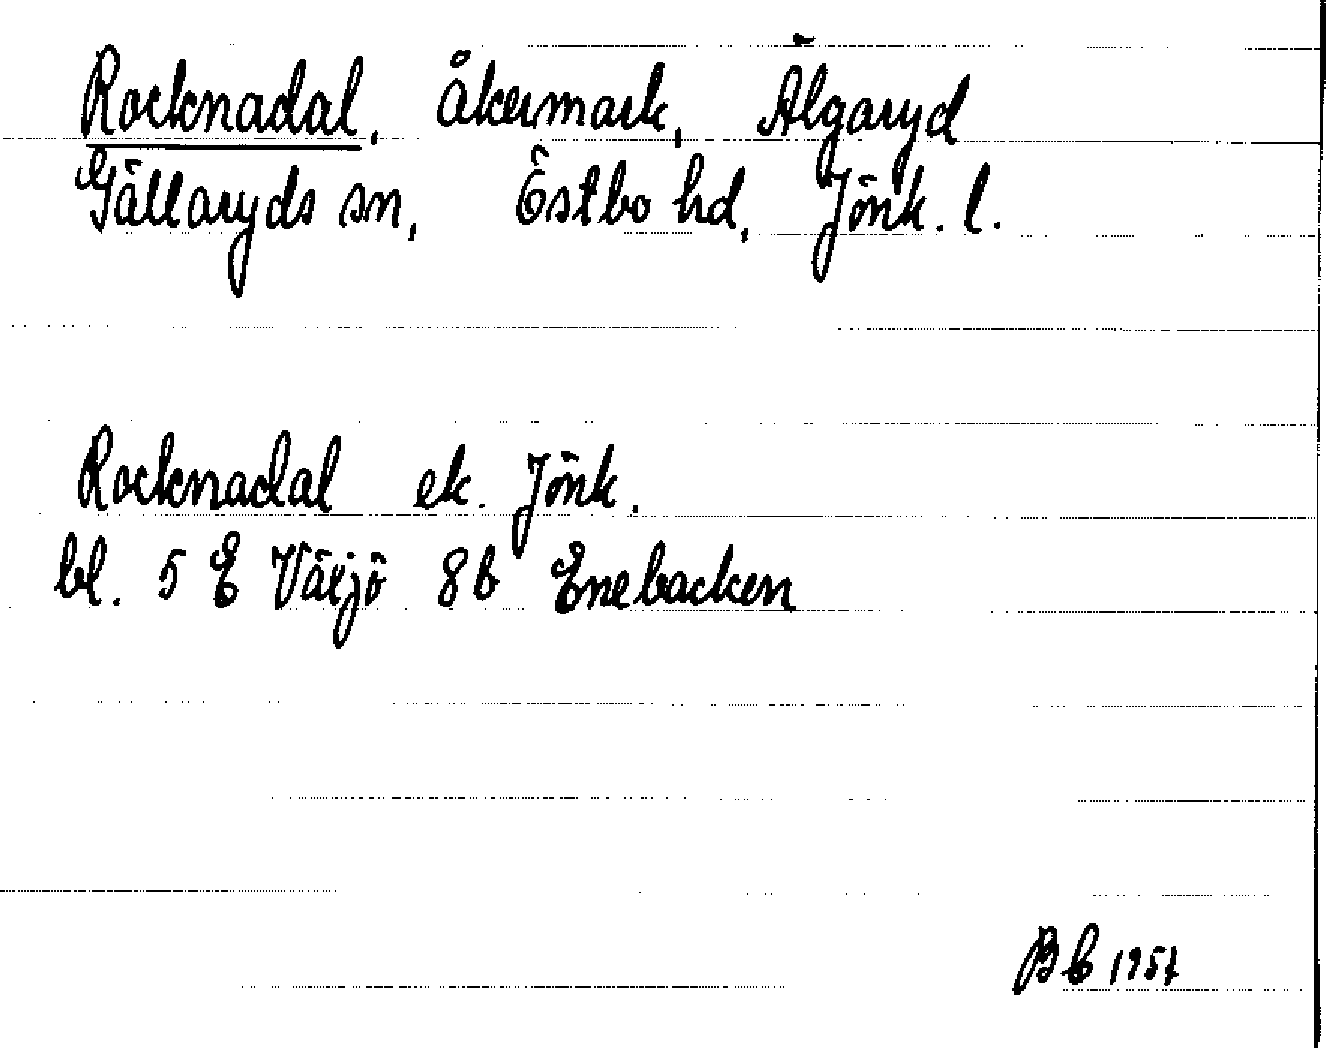 Rocknadal, Åkermark, Älgaryd
Gällaryds sn, Östbo hd, Jönk. l.
Rocknadal ek. Jönk.
bl. 5 E Växjö 8b Enebacken